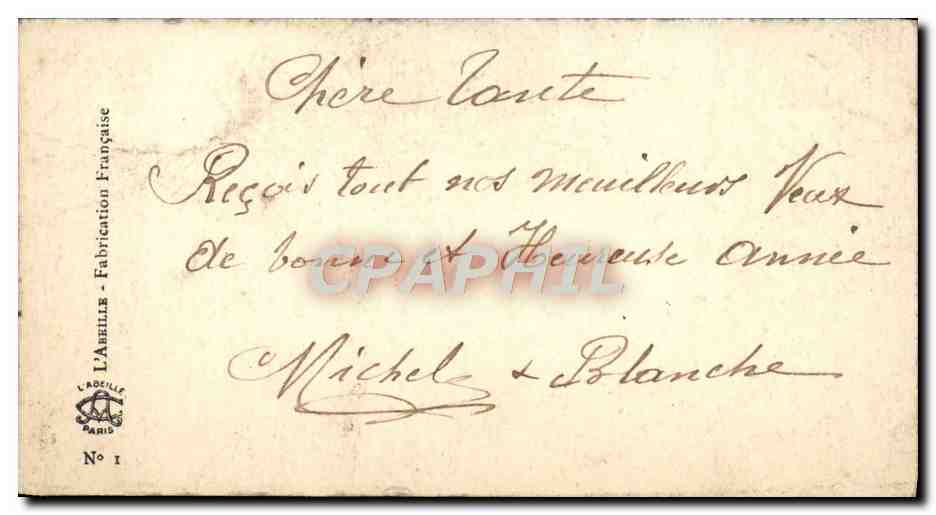 Chère Tante
Reçois tout nos meuilleurs Veux
de bonne et Heureuse année
Michel & Blanche
L'ABEILLE - Fabrication Française
L'ABEILLE
PARIS
Nº 1
CPAPHIL